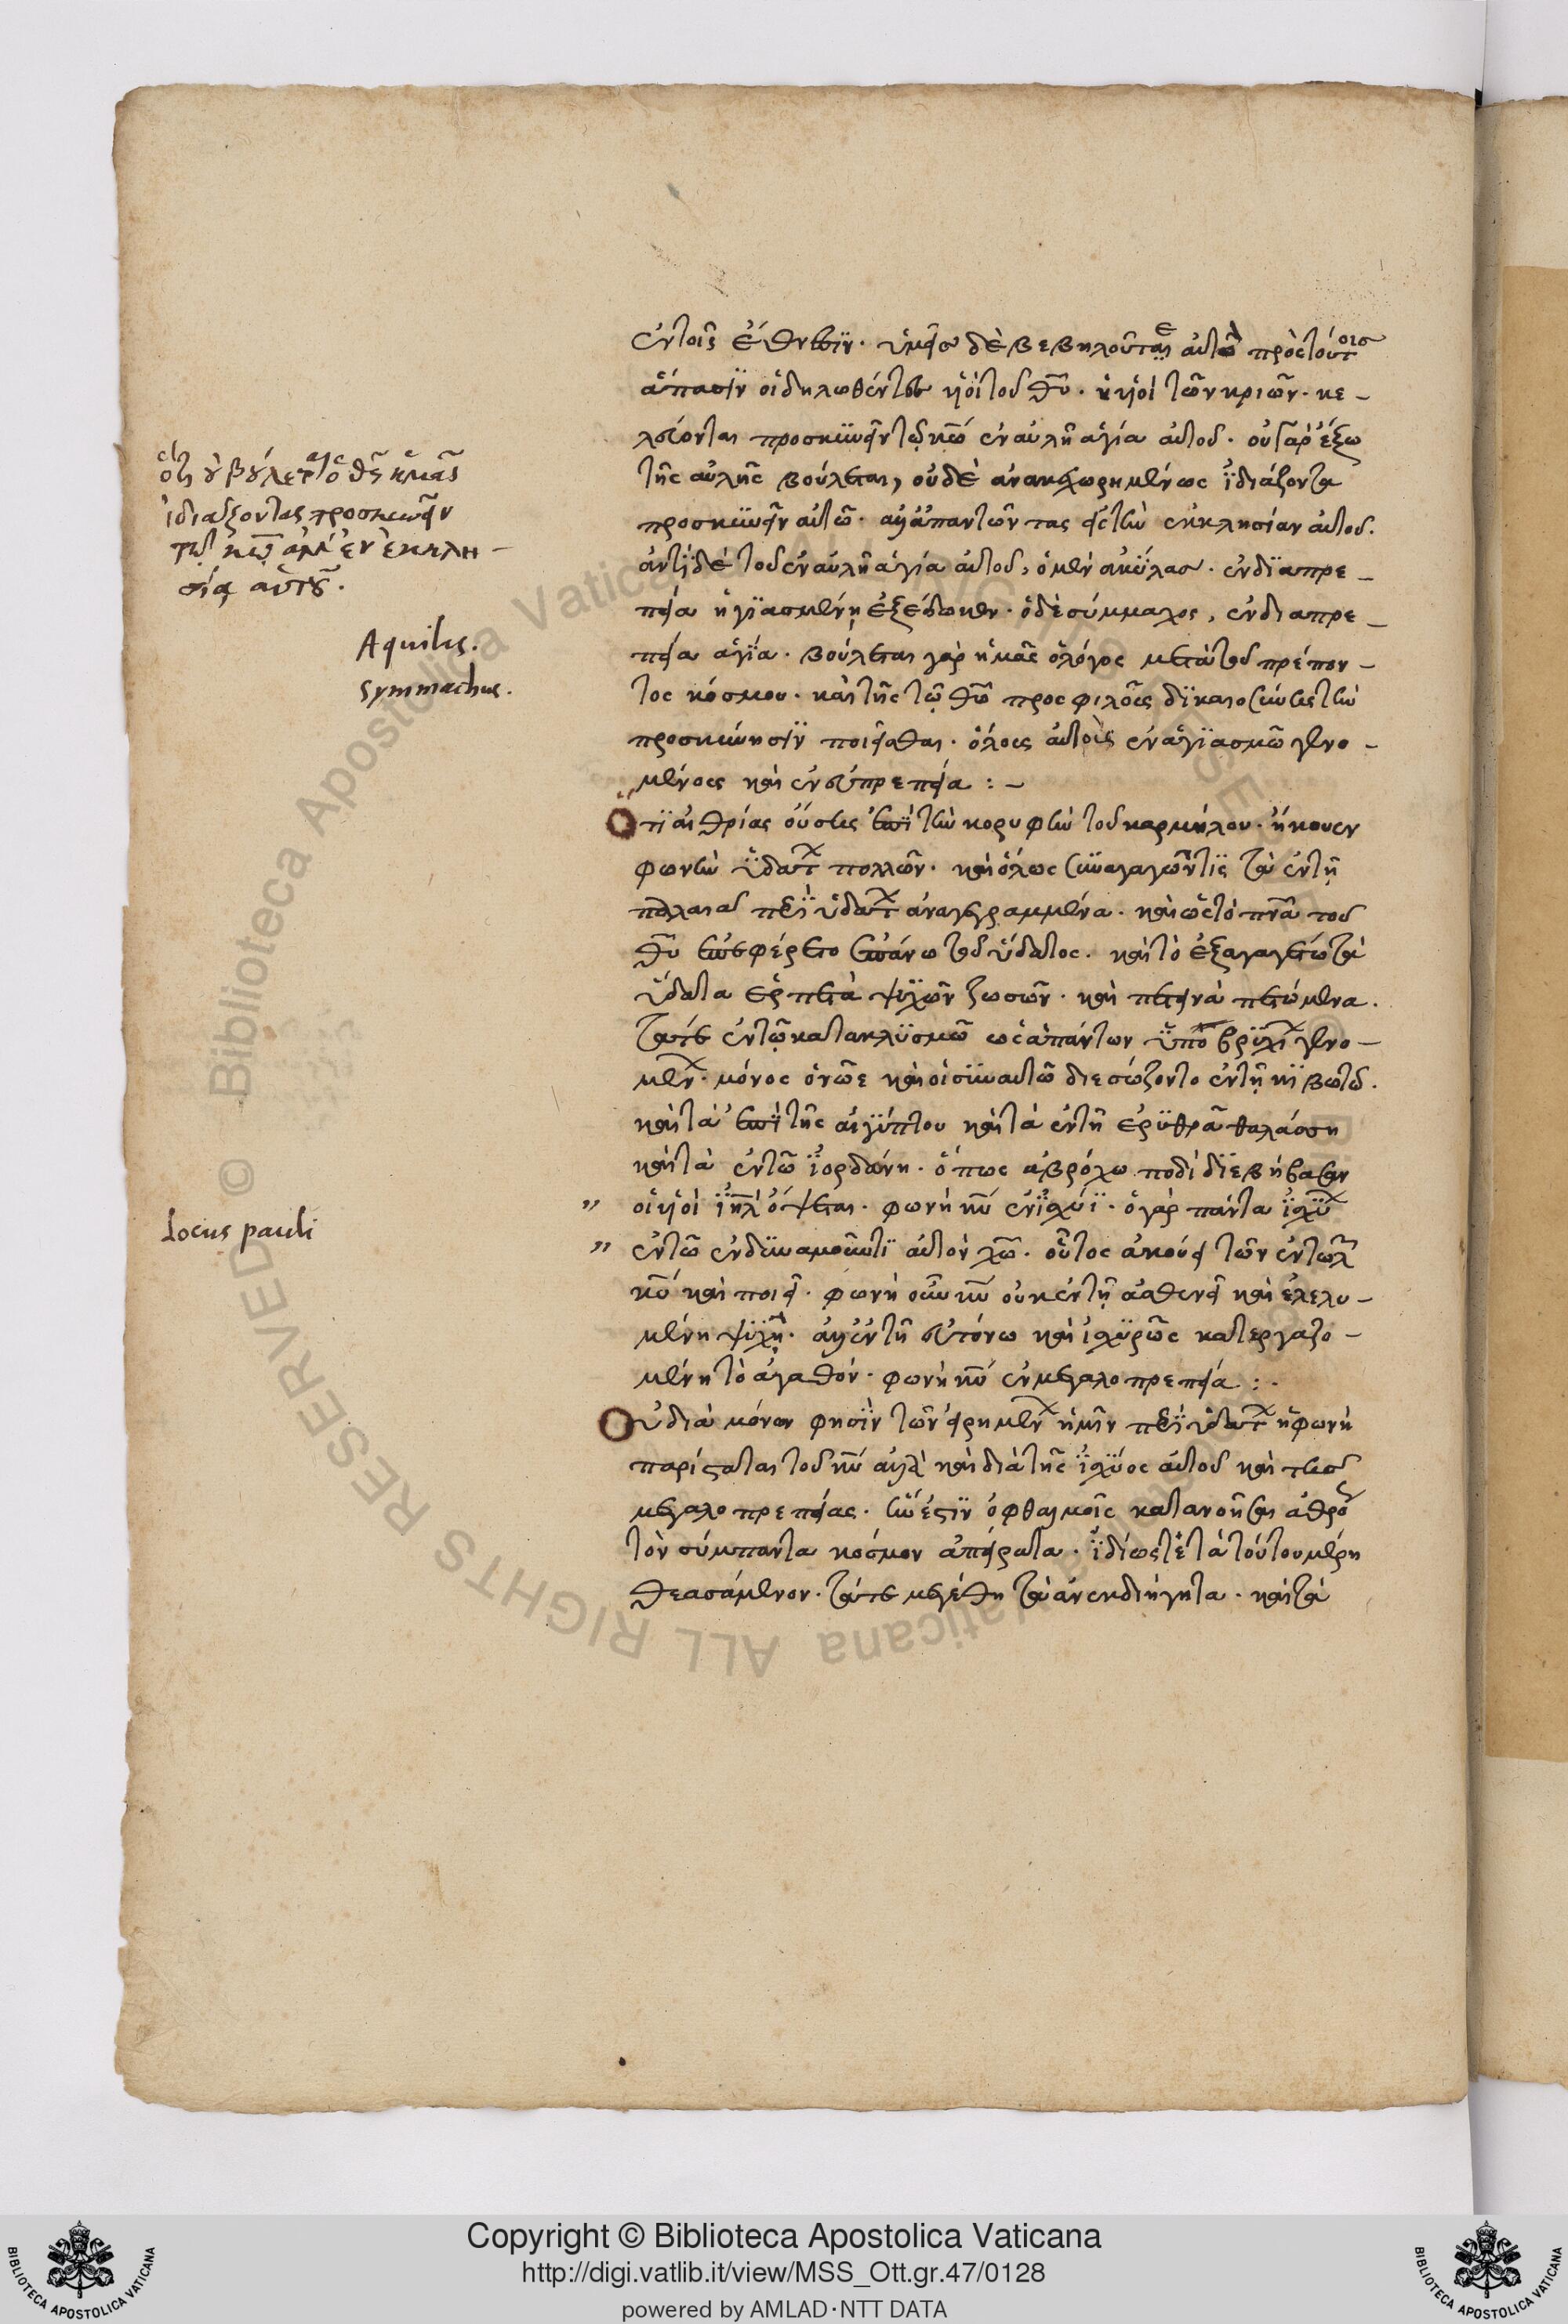 ἐν τοῖς ἔθνεσιν. ὑμεῖς δὲ βεβηλοῦτε αὐτό πρὸς τούτοις
ἅπασιν οἱ δηλωθέντες υἱοὶ τοῦ θυ. υἱοὶ τῶν κριῶν. κε-
λεύονται προσκυνεῖν τῷ κω ἐν αὐλῆ ἁγία αὐτοῦ. οὐ γὰρ ἔξω
τῆς αὐλῆς βούλεται, οὐδὲ ἀνακεχωρημένως ἰδιάζοντα
προσκυνεῖν αὐτῶ. ἀλλ' ἀπαντῶντας εἰς τὴν ἐκκλησίαν αὐτοῦ.
ἀντὶ δὲ τοῦ ἐν αὐλῆ ἁγία αὐτοῦ, ὁ μὲν ἀκύλας. ἐν διαπρε-
πεία ἡγιασμένη ἐξέδωκεν. ὁ δὲ σύμμαχος, ἐν διαπρε-
πεία ἁγία. βούλεται γὰρ ἡμᾶς ὁ λόγος μετὰ τοῦ πρέπον-
τος κόσμου. καὶ τῆς τῷ θω προσφιλοῦς δικαιοσύνης τὴν
προσκύνησιν ποιεῖσθαι. ὅλοις αὐτοῖς ἐν ἁγιασμῶ γενο-
μένοις καὶ ἐν εὐπρεπεία :-
Ὅτι αἰθρίας οὔσης ἐπὶ τὴν κορυφὴν τοῦ καρμήλου. ἤκουεν
φωνὴν ὑδάτ πολλῶν. καὶ ὅλως συναγαγών τις τὰ ἐν τῆ
παλαιᾶ περὶ ὑδάτ ἀναγεγραμμένα. καὶ ὡς τὸ πνα τοῦ
θυ ἐπεφέρετο ἐπάνω τοῦ ὕδατος. καὶ τὸ ἐξαγαγέτω τὰ
ὕδατα ἑρπετὰ ψυχῶν ζωσῶν. καὶ πετεινὰ πετώμενα.
τά τε ἐν τῷ κατακλυσμῶ ὡς ἁπάντων ὑποβρυχί γενο-
μέν. μόνος ὁ νῶε καὶ οἱ σὺν αὐτῶ διεσώζοντο ἐν τῆ κιβωτῷ.
καὶ τὰ ἐπὶ τῆς αἰγύπτου καὶ τὰ ἐν τῆ ἐρυθρᾶ θαλάσση
καὶ τὰ ἐν τῶ ἰορδάνη. ὅπως ἀβρόχω ποδὶ διεβήβασεν
„ οἱ υἱοὶ ιηλ ὄψεται. φωνὴ κυ ἐν ἰσχύϊ. ὁ γὰρ πάντα ἰσχύ
„ ἐν τῶ ἐνδυναμοῦντι αὐτὸν χω. οὗτος ἀκούει τῶν ἐντωλ
κυ καὶ ποιεῖ. φωνὴ οὖν κυ οὐκ ἐν τῆ ἀσθενεῖ καὶ ἐκλελυ-
μένη ψυχῆ. ἀλλ' ἐν τῆ εὐτόνω καὶ ἰσχυρῶς κατεργαζο-
μένη τὸ ἀγαθόν. φωνὴ κυ ἐν μεγαλοπρεπεία :.
Οὐ διὰ μόνον φησὶν τῶν εἰρημέν ἡμῖν περὶ ὑδάτ ἡ φωνὴ
παρίσταται τοῦ κυ ἀλλὰ καὶ διὰ τῆς ἰσχύος αὐτοῦ καὶ τῆς
μεγαλοπρεπείας. ὧν ἔστιν ὀφθαλμοῖς κατανοῆσαι ἀθρό
τὸν σύμπαντα κόσμον ἀπείρατα. ἰδίως τὲ τὰ τούτου μέρη
θεασάμενον. τά τε μεγέθη τὰ ἀνεκδιήγητα. καὶ τὰ
ὅτι οὐ βούλεται ὁ θς ἡμᾶς
ἰδιάζοντας προσκυνεῖν
τῷ κῳ ἀλλ' ἐν ἐκκλη-
σίᾳ αὐτοῦ.
Aquilas.
symmachus.
Locus pauli
Copyright © Biblioteca Apostolica Vaticana
http://digi.vatlib.it/view/MSS_Ott.gr.47/0128
powered by AMLAD·NTT DATA
BIBLIOTECA APOSTOLICA VATICANA
BIBLIOTECA APOSTOLICA VATICANA